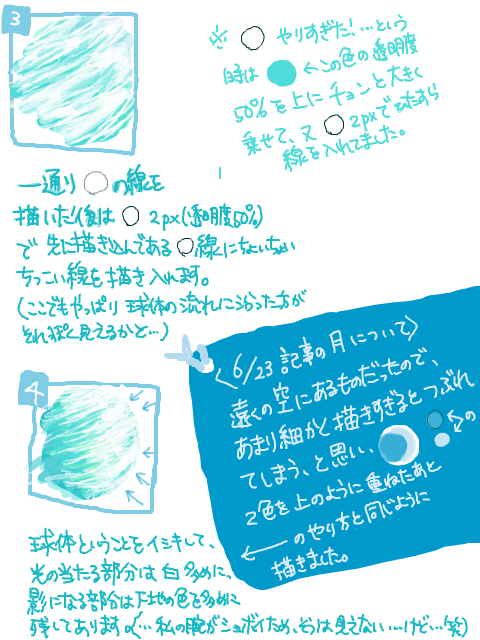 3
※ ○ やりすぎた!…という
時は ● ←この色の透明度
50%を上にチョンと大きく
乗せて、又 ○ 2pxでてたたら
線を入れてました。
一通り ○ の線を
描いた後は ○ 2px(透明度50%)
で 先に描き込んである ○ 線にちょいちょい
ちっこい線を描き入れます。
(ここでもやっぱり 球体の流れにそった方が
それっぽく見えるかと…)
4
球体ということをイシキして、
光の当たる部分は白多めに、
影になる部分は下地の色を多めに
残してあります (…私の腕がショボイため、そうは見えない…けど…(笑)
〈6/23 記事の月について〉
遠くの空にあるものだったので、
あまり細かく描きすぎるとつぶれ
てしまう、と思い、 の
2色を上のように重ねたあと
← のやり方と同じように
描きました。